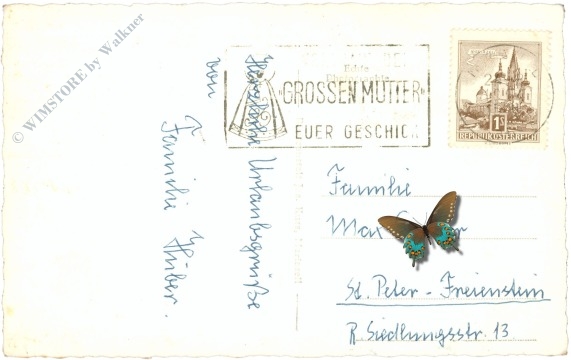 © WIMSTORE by Walkner
Herzliche Urlaubsgrüße
von
Familie Huber.
"GROSSEN MUTTER"
EUER GESCHICK
1S
REPUBLIK ÖSTERREICH
Familie
Max
St. Peter - Freienstein
R. Siedlungsstr. 13